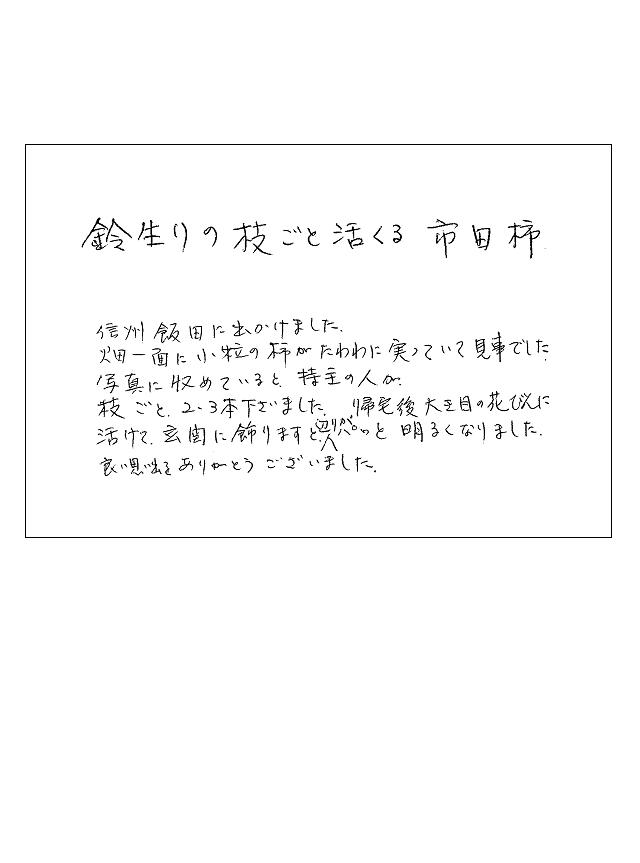 鈴生りの枝ごと活くる 市田柿
信州飯田に出かけました.
畑一面に小粒の柿がたわわに実っていて見事でした.
写真に収めていると、持主の人が、
枝ごと、2・3本下さいました. 帰宅後大き目の花びんに
活けて、玄関に飾りますと辺りがパっと明るくなりました.
良い思い出をありがとうございました.